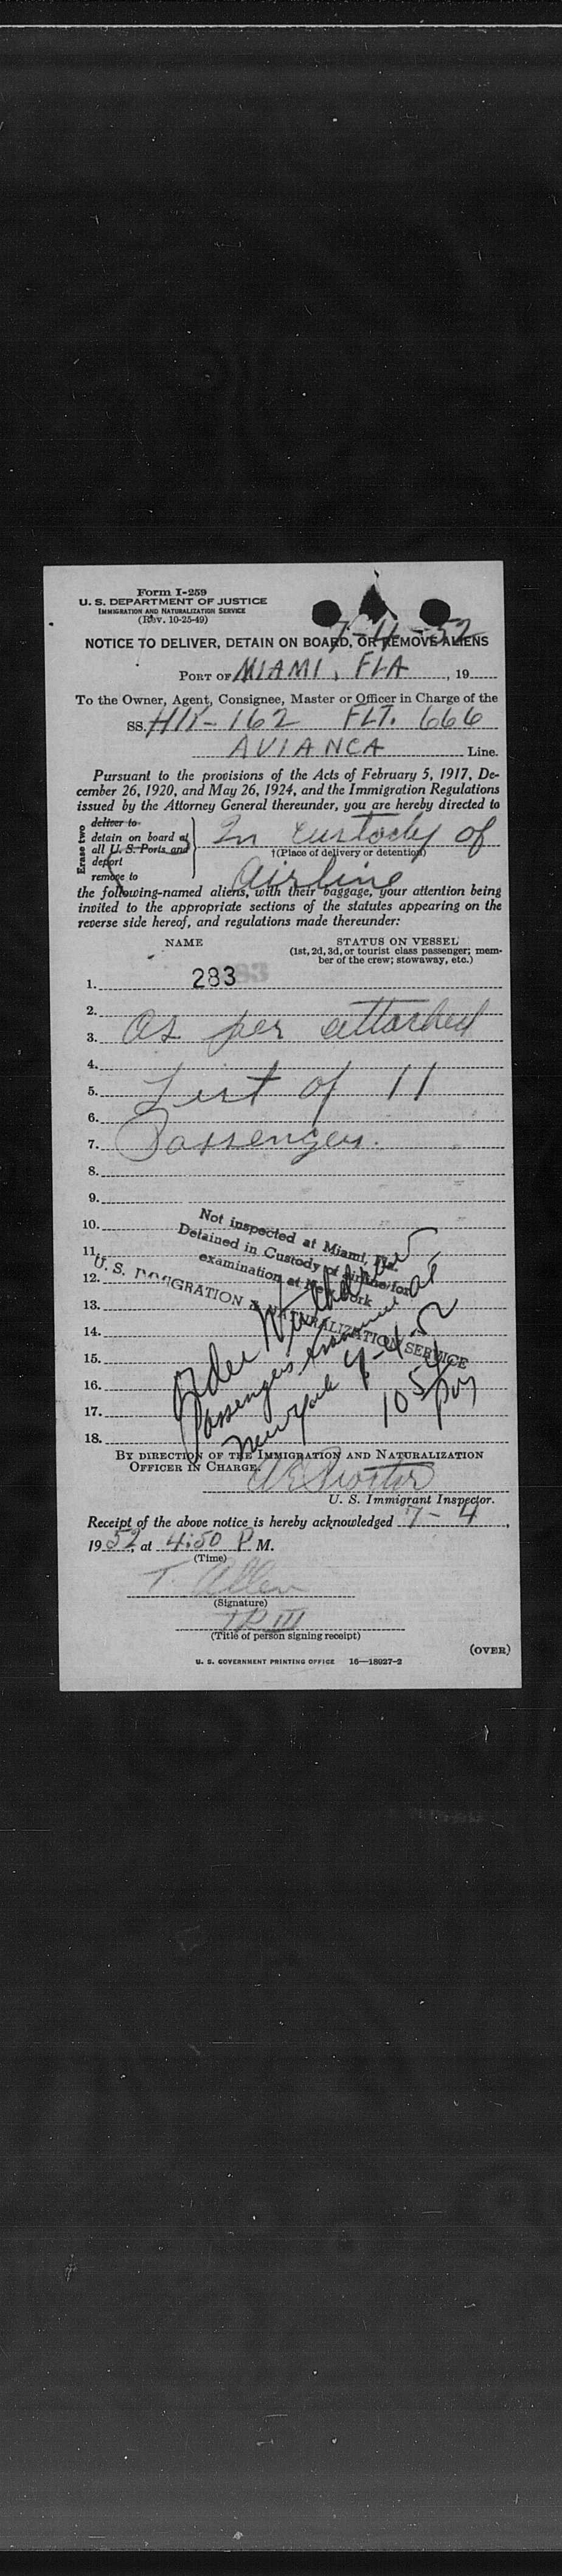 Form I-259
U. S. DEPARTMENT OF JUSTICE
IMMIGRATION AND NATURALIZATION SERVICE
(Rev. 10-25-49)
7-4-52
NOTICE TO DELIVER, DETAIN ON BOARD, OR REMOVE ALIENS
PORT OF MIAMI, FLA, 19
To the Owner, Agent, Consignee, Master or Officer in Charge of the
SS. 162 FLT. 666
AVIANCA Line.
Pursuant to the provisions of the Acts of February 5, 1917, De-
cember 26, 1920, and May 26, 1924, and the Immigration Regulations
issued by the Attorney General thereunder, you are hereby directed to
Erase two
deliver to
detain on board at
all U. S. Ports and
deport
remove to
In custody of
†(Place of delivery or detention)
Airline
the following-named aliens, with their baggage, your attention being
invited to the appropriate sections of the statutes appearing on the
reverse side hereof, and regulations made thereunder:
NAME STATUS ON VESSEL
(1st, 2d, 3d, or tourist class passenger; mem-
ber of the crew; stowaway, etc.)
1. 283
2.
3. As per attached
4.
5. List of 11
6.
7. Passengers.
8.
9.
10.
11.
12.
13.
14.
15.
16.
17.
18.
Not inspected at Miami, Fla.
Detained in Custody of airline for
examination at New York
U. S. IMMIGRATION & NATURALIZATION SERVICE
Order Withdrawn
Passengers examined at
New York 7-4-52
BY DIRECTION OF THE IMMIGRATION AND NATURALIZATION
OFFICER IN CHARGE.
U. S. Immigrant Inspector.
Receipt of the above notice is hereby acknowledged 7-4,
1952, at 4:50 P M.
(Time)
T. Allen
(Signature)
(Title of person signing receipt)
(OVER)
U. S. GOVERNMENT PRINTING OFFICE 16—18927-2